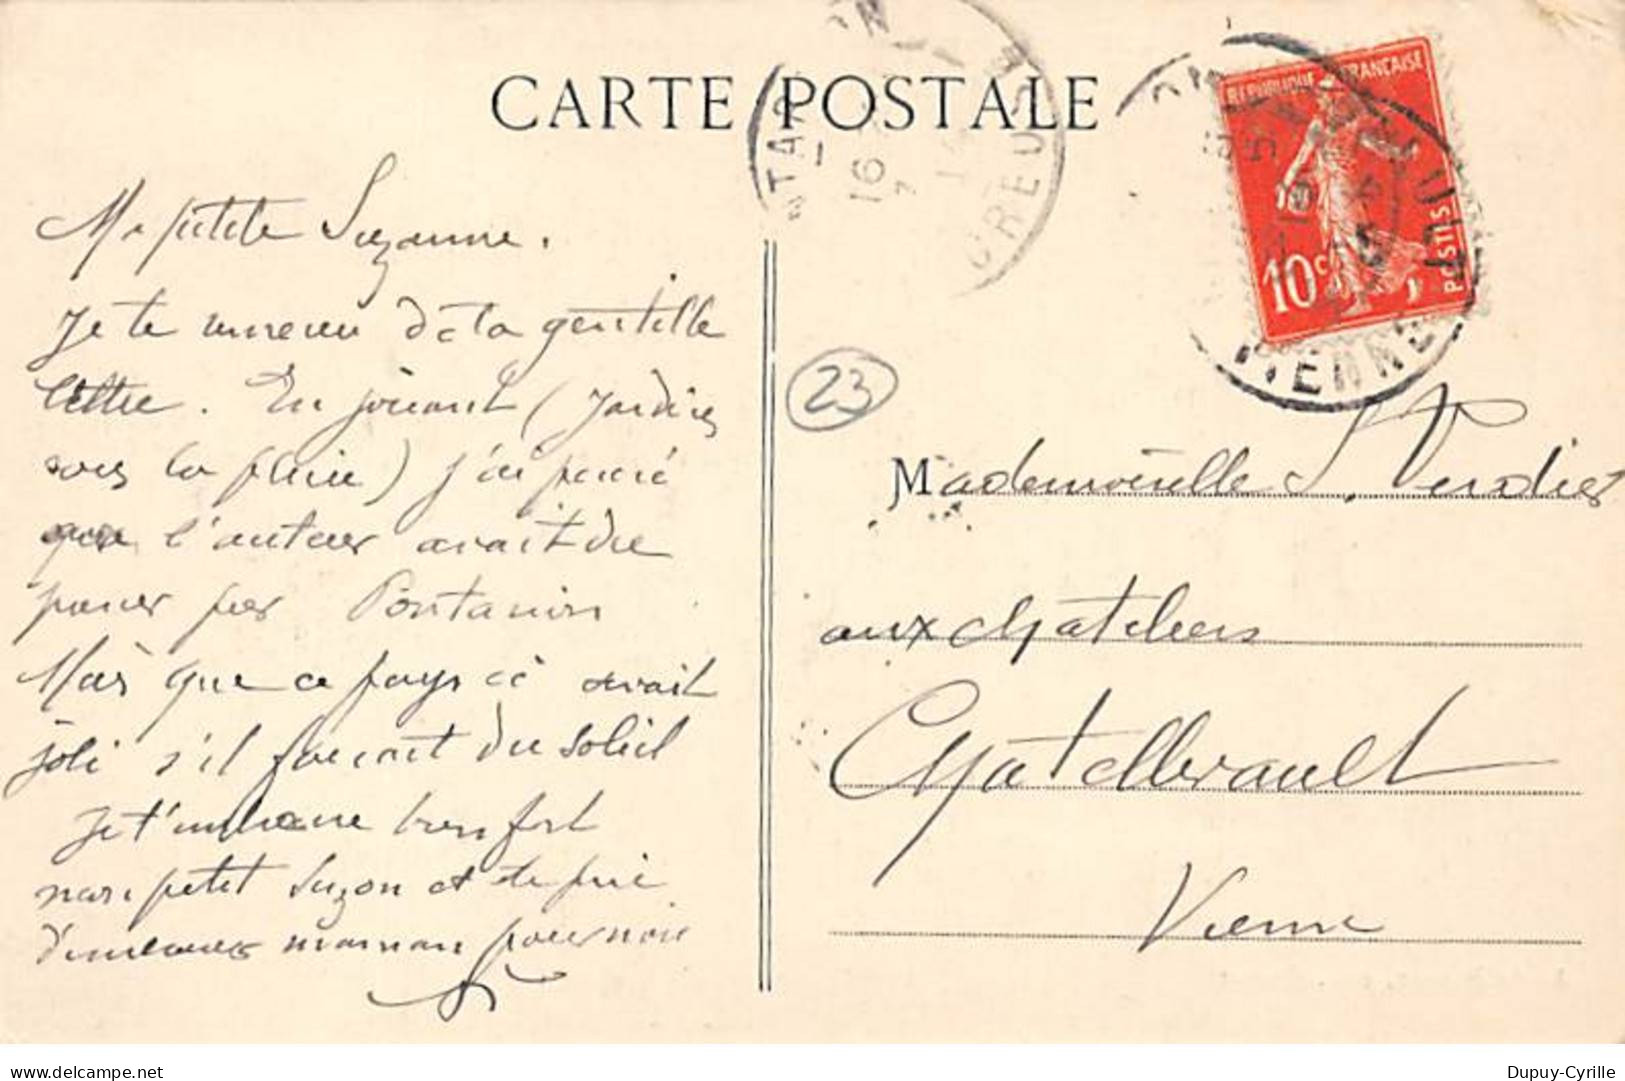 CARTE POSTALE
RÉPUBLIQUE FRANÇAISE
10c
POSTES
CREUSE
16
VIENNE
23
Ma petite Suzanne.
Je te remercie de ta gentille
lettre. En jouant (Jardins
sous la pluie) j'ai pensé
que l'auteur avait du
passer par Pontarion
Mais que ce pays ci serait
joli s'il faisait du soleil
Je t'embrasse bien fort
mon petit Suzon et te prie
d'embrasser maman pour moi
Mademoiselle S. Verdier
aux Chatelliers
Chatellerault
Vienne
delcampe.net
Dupuy-Cyrille